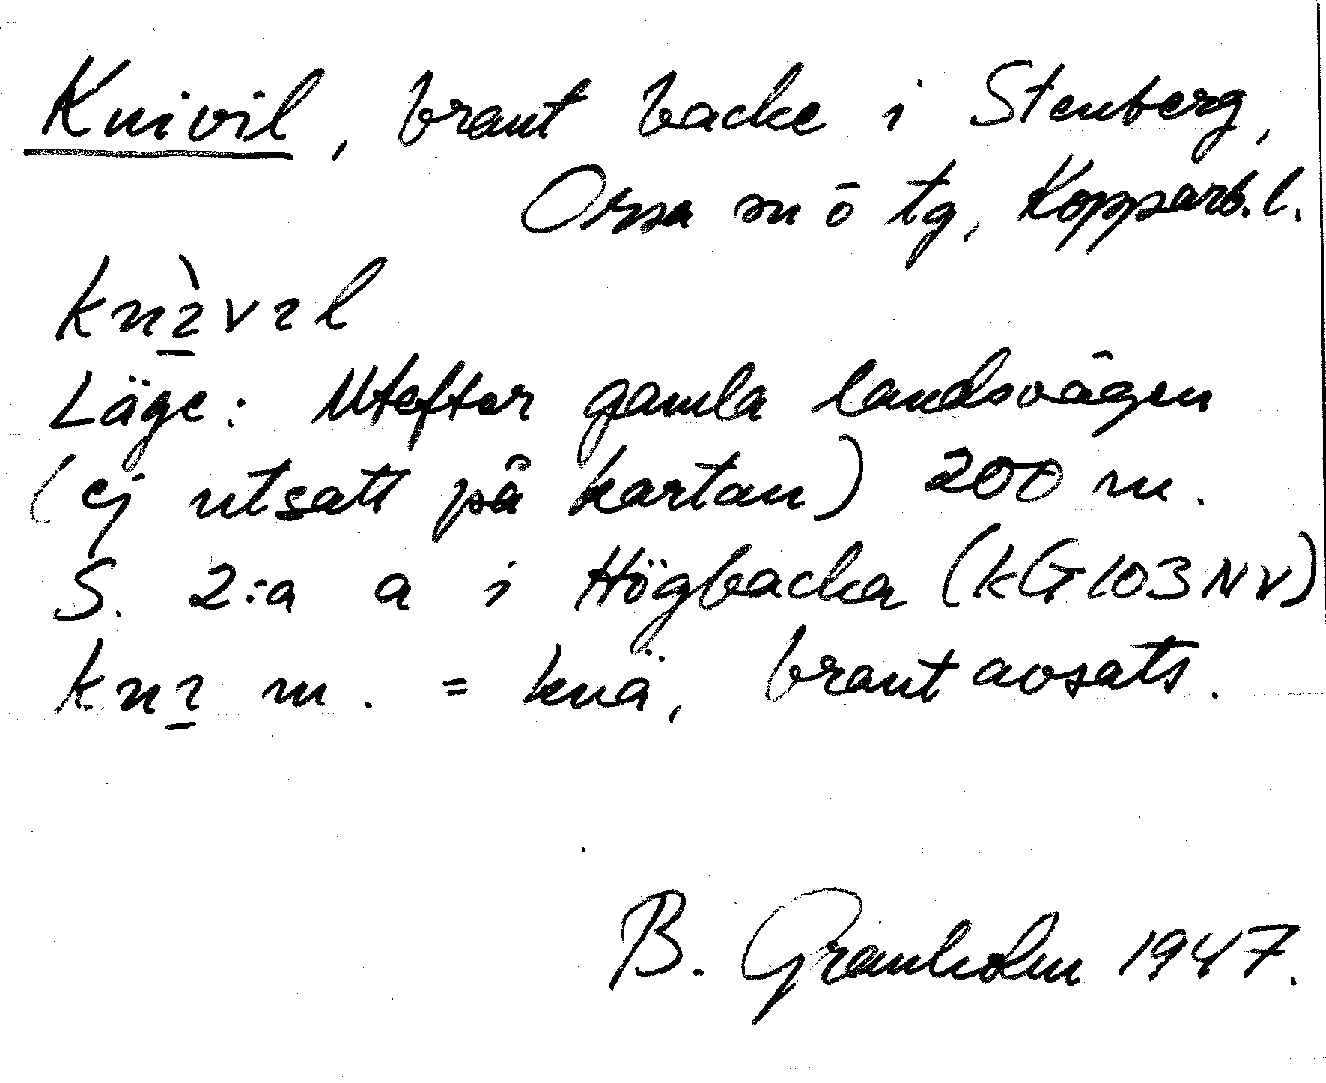 Knivil, brant backe i Stenberg,
Orsa m o tg, Kopparb. l.
knɿ̱̀vɿl
Läge: Utefter gamla landsvägen
(ej utsatt på kartan) 200 m.
S. 2:a a i Högbacka (kG103NV)
knɿ̱ m. = knä, brant avsats.
B. Granholm 1947.